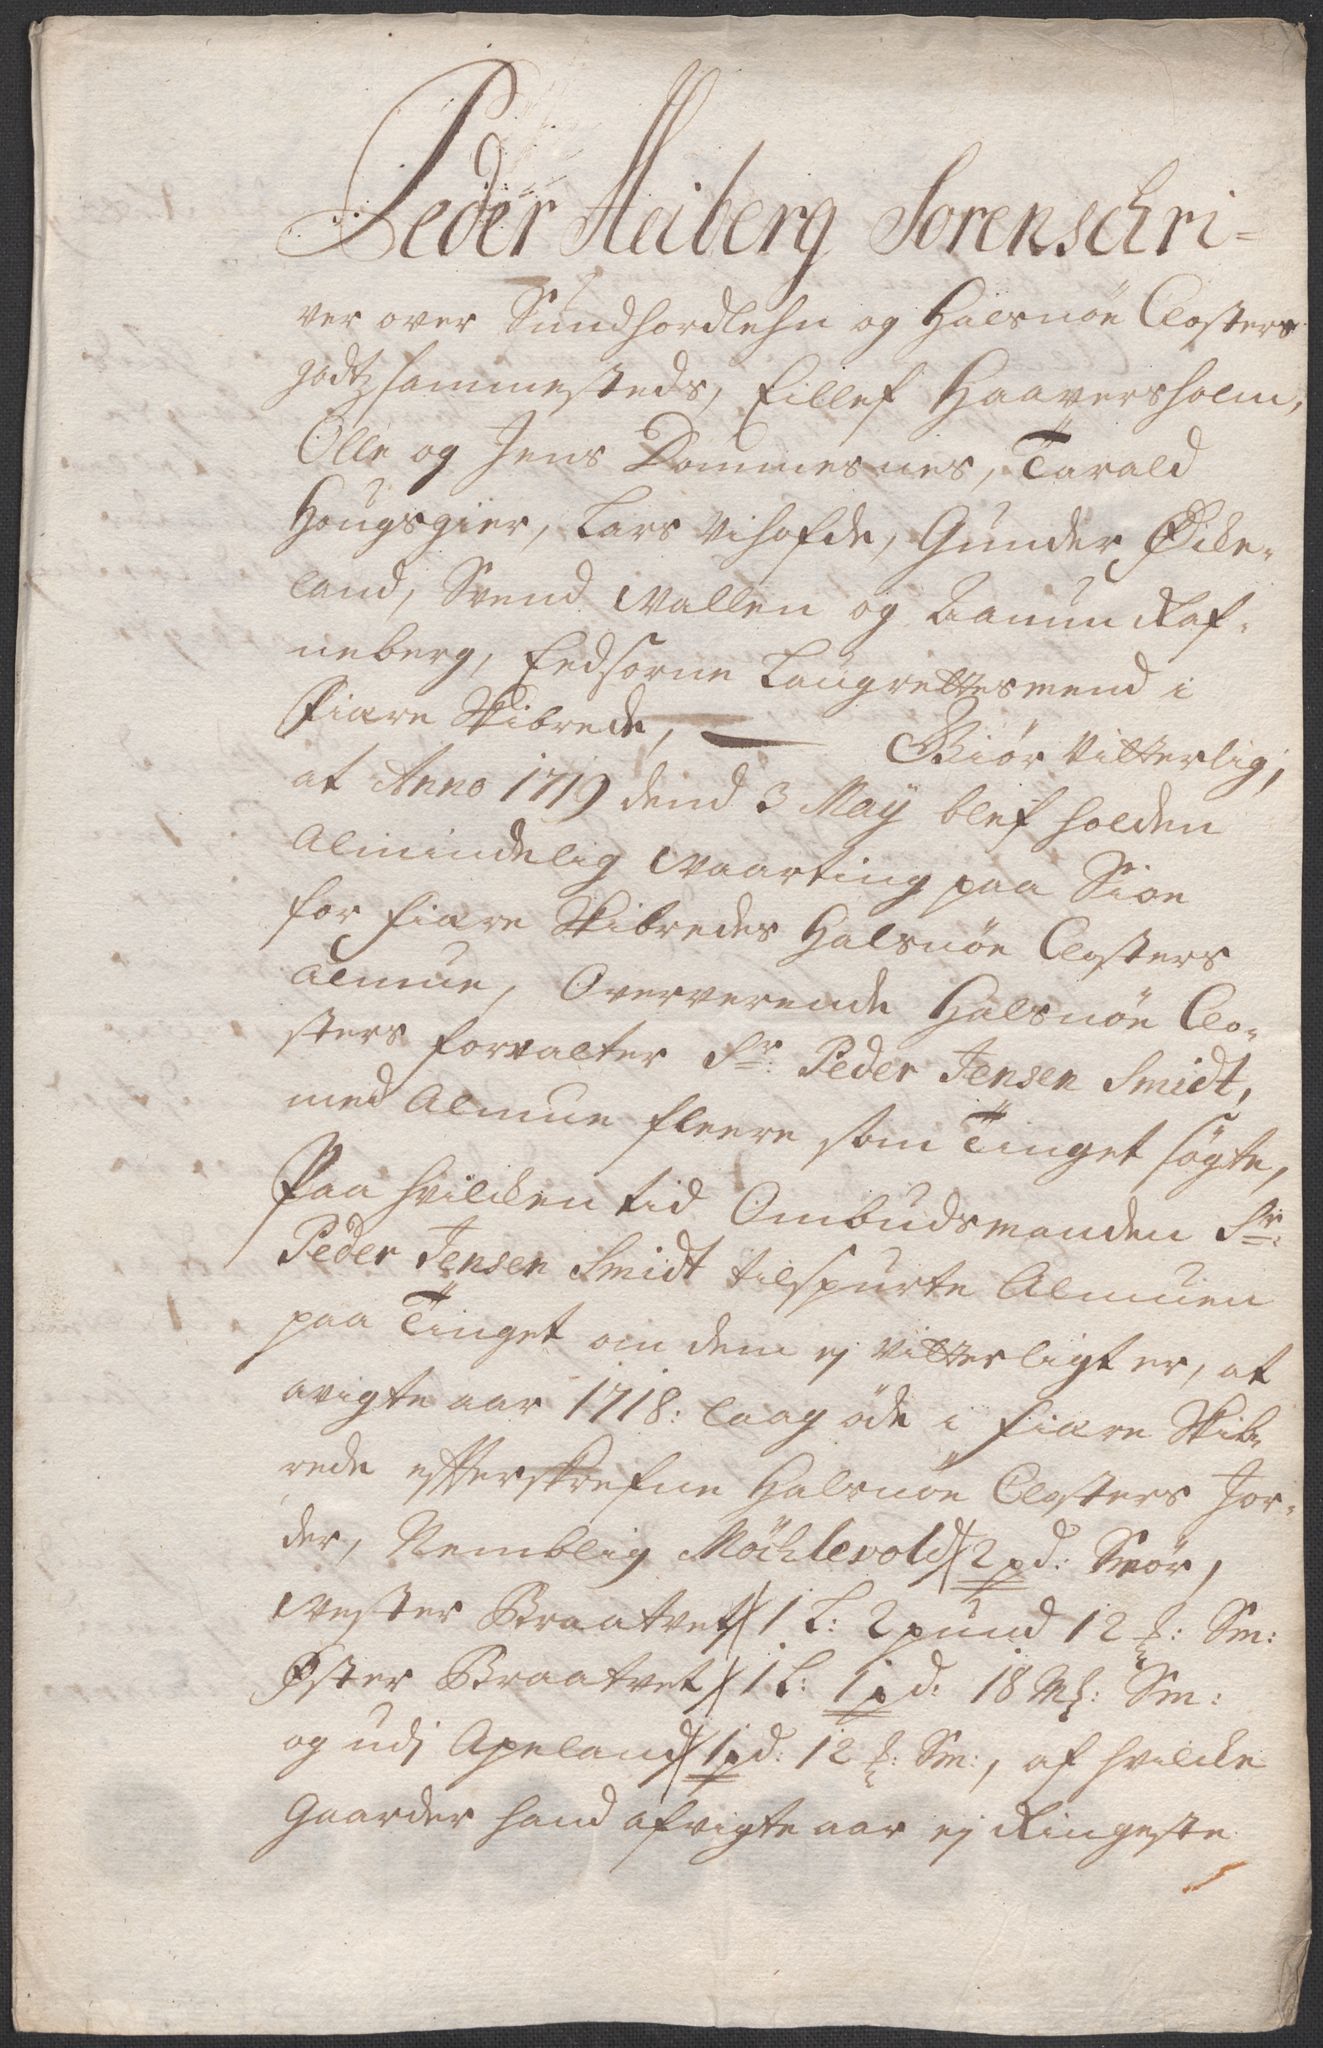 Peder Heiberg Sorenschri-
ver over Sundhordlehn og Halsnöe Closters
godtz sammesteds, Eillef Haaversholm,
Olle og Jens Dommesnes, Tarald
Hougsgier, Lars Vihofde, Gunder Öicke-
land, Svend Vallen og Aamun Raf-
neberg, Eedsorne Laugrettesmend i
Fiære Skibrede, Giör Vitterlig,
at Anno 1719 dend 3 May blef holden
Almindelig Vaarting paa Sioe
for Fiære Skibredes Halsnöe Closters
Almue, Oververende Halsnöe Clo-
sters forvalter Sr: Peder Jensen Smidt,
med Almue fleere som Tinget sögte,
Paa hvilcken tid Ombudsmanden Sr:
Peder Jensen Smidt tilspurte Almuen
paa Tinget om dem ej Vitterligt er, at
avigte aar 1718: laag öde i Fiære Skib-
rede effterskrefne Halsnöe Closters Jor-
der, Nemblig Möchlevold 2 pd: Smör,
Vester Braatvet 1 L: 2 pund 12 : Sm:
Öster Braatvet 1 L: 1 pd: 18 Mk: Sm:
og udj Apeland 1 pd: 12 : Sm:, af hvilcke
Gaarder hand afvigte aar ej Ringeste